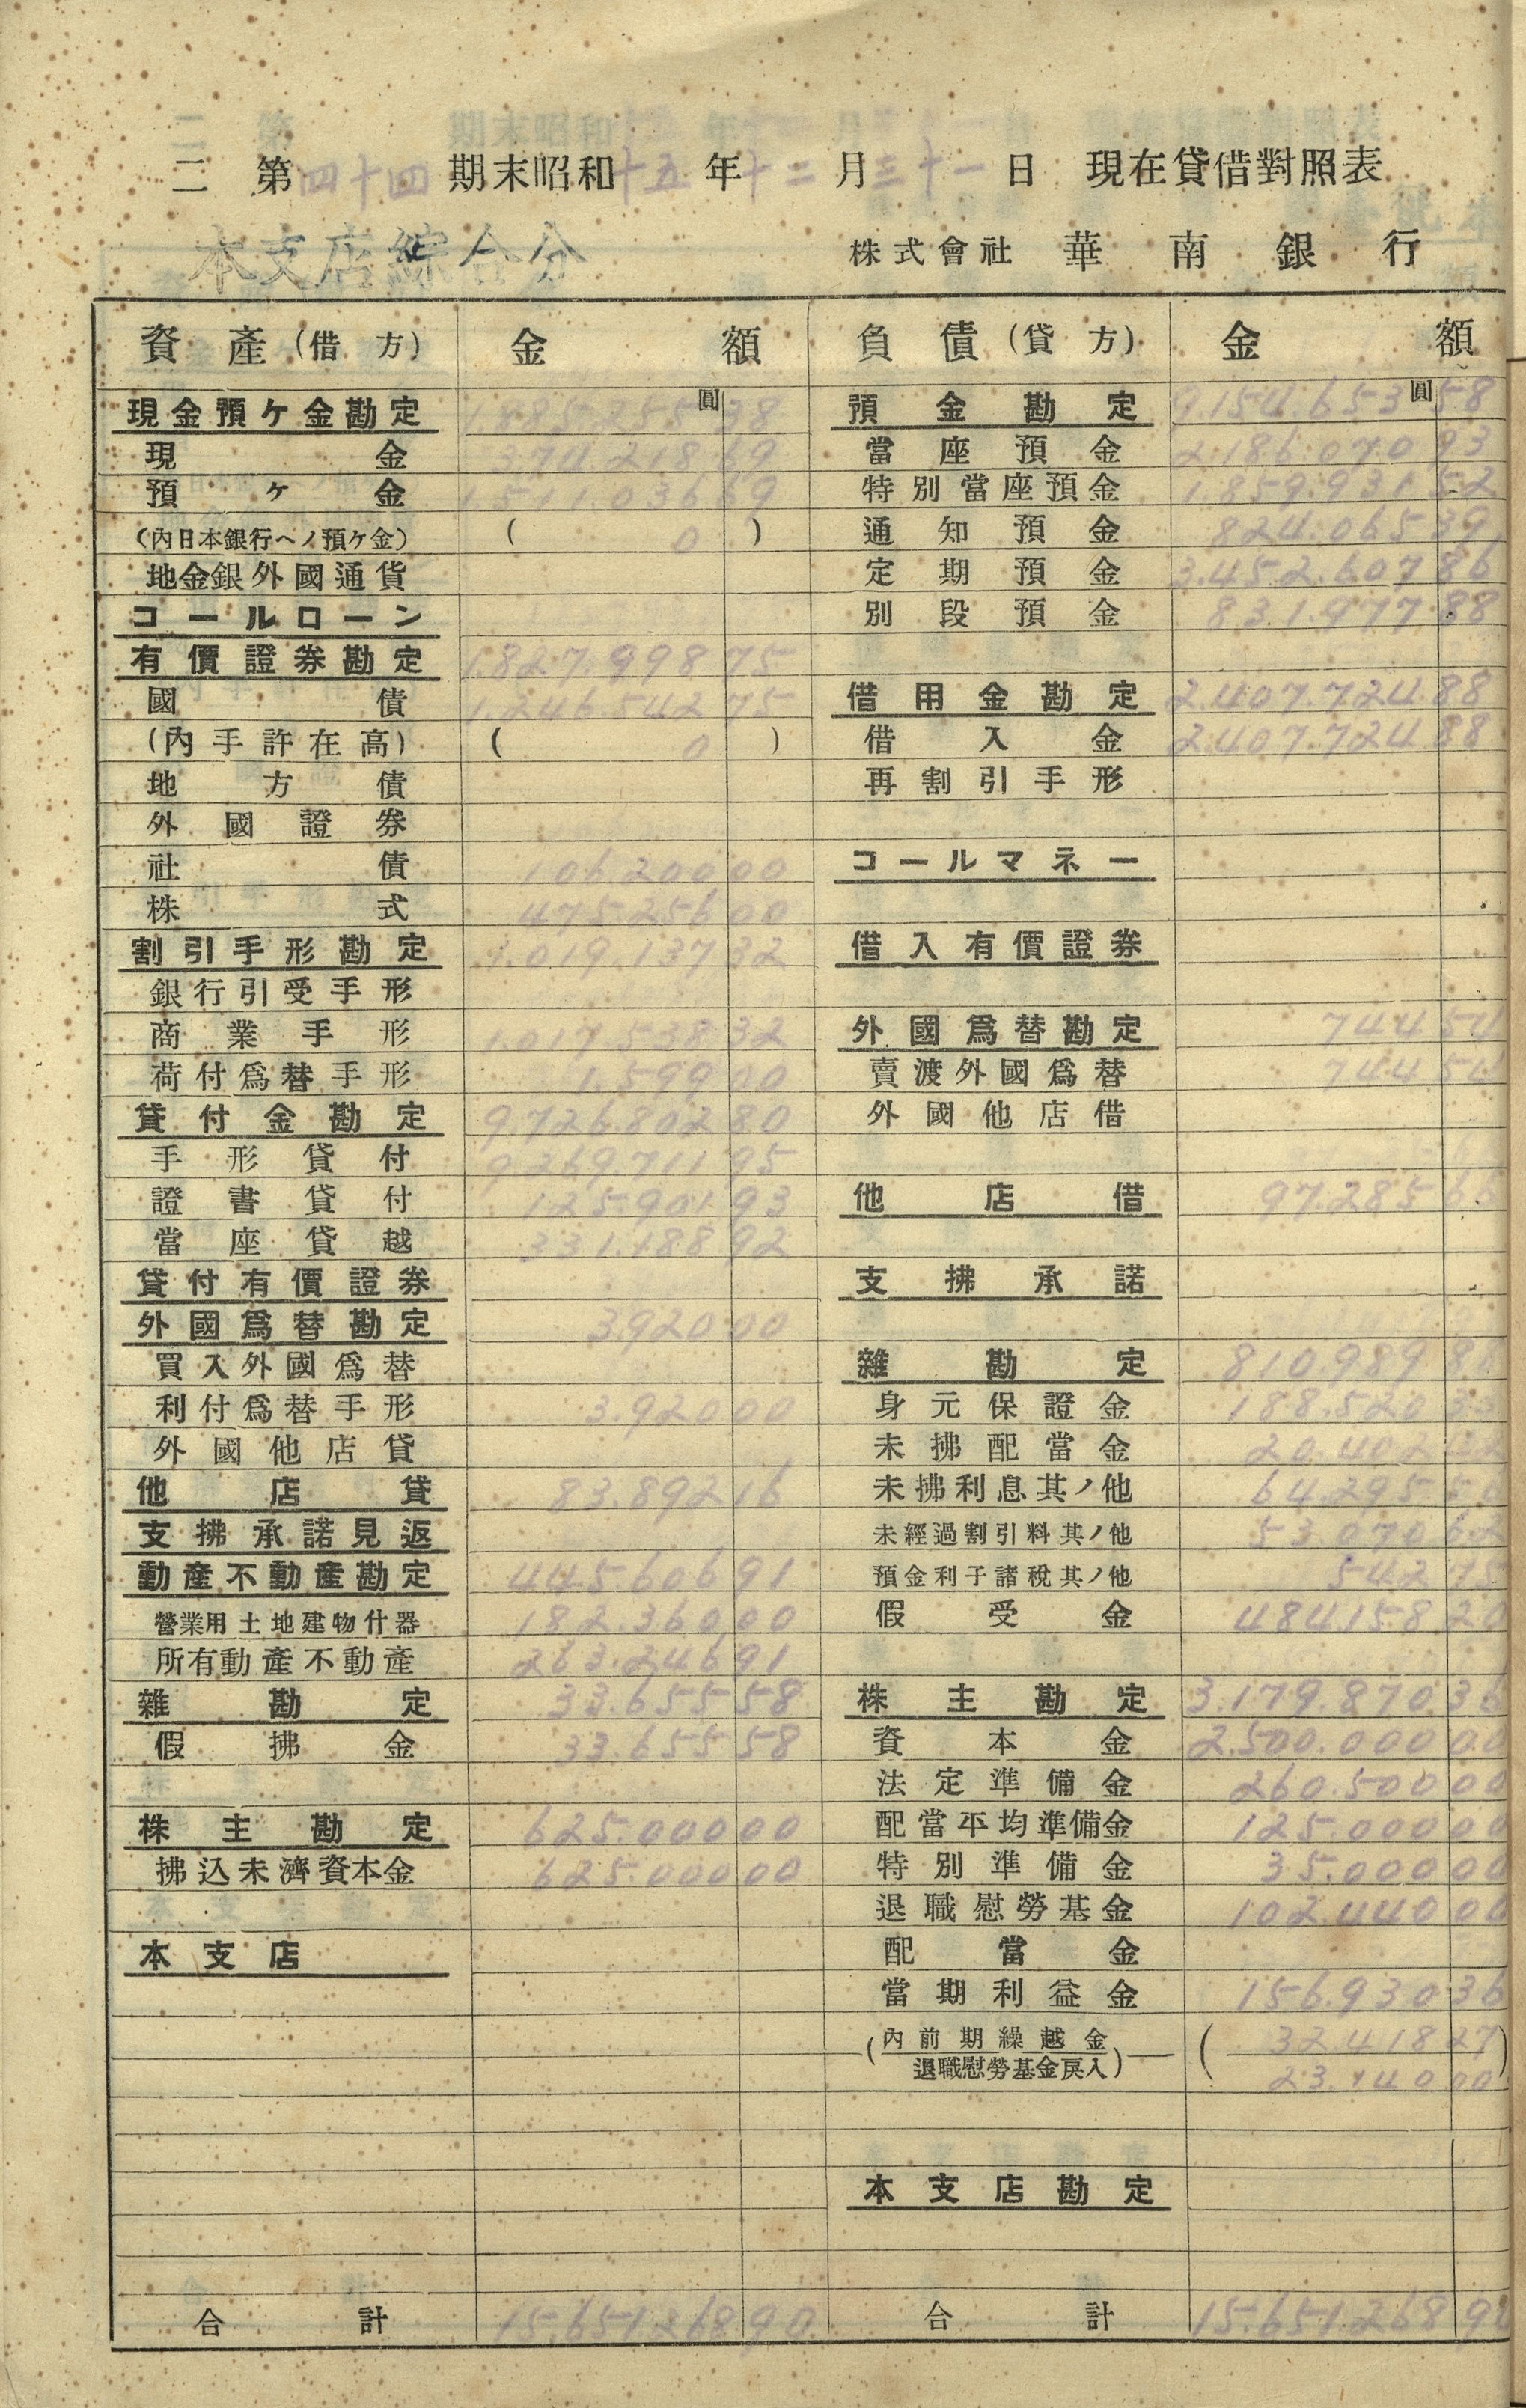 二 第四十四期末昭和十五年十二月三十一日 現在貸借對照表
本支店綜合分
株式會社 華南銀行
資產(借方) 金額
現金預ケ金勘定 圓 1.885.255 38
現金 374.218 69
預ケ金 1.511.036 69
(內日本銀行ヘノ預ケ金) ( 0 )
地金銀外國通貨
コールローン
有價證券勘定 1.827.998 75
國債 1.246.542 75
(內手許在高) ( 0 )
地方債
外國證券
社債 106.200 00
株式 475.256 00
割引手形勘定 1.019.137 32
銀行引受手形
商業手形 1.017.538 32
荷付爲替手形 1.599 00
貸付金勘定 9.726.802 80
手形貸付 9.269.711 95
證書貸付 125.901 93
當座貸越 331.188 92
貸付有價證券
外國爲替勘定 3.920 00
買入外國爲替
利付爲替手形 3.920 00
外國他店貸
他店貸 83.892 16
支拂承諾見返
動產不動產勘定 445.606 91
營業用土地建物什器 182.360 00
所有動產不動產 263.246 91
雜勘定 33.655 58
假拂金 33.655 58
株主勘定 625.000 00
拂込未濟資本金 625.000 00
本支店
合計 15.651.268 90
負債(貸方) 金額
預金勘定 圓 9.154.653 58
當座預金 2.186.070 93
特別當座預金 1.859.931 52
通知預金 824.065 39
定期預金 3.452.607 86
別段預金 831.977 88
借用金勘定 2.407.724 88
借入金 2.407.724 88
再割引手形
コールマネー
借入有價證券
外國爲替勘定 744 54
賣渡外國爲替 744 54
外國他店借
他店借 97.285 66
支拂承諾
雜勘定 810.989 88
身元保證金 188.520
未拂配當金 20.402
未拂利息其ノ他 64.295 50
未經過割引料其ノ他 53.070 62
預金利子諸稅其ノ他 542
假受金 484.158 20
株主勘定 3.179.870 36
資本金 2.500.000 00
法定準備金 260.500 00
配當平均準備金 125.000 00
特別準備金 35.000 00
退職慰勞基金 102.440 00
配當金
當期利益金 156.930 36
(內前期繰越金 (32.418 27
退職慰勞基金戾入) 23.140 00)
本支店勘定
合計 15.651.268 90